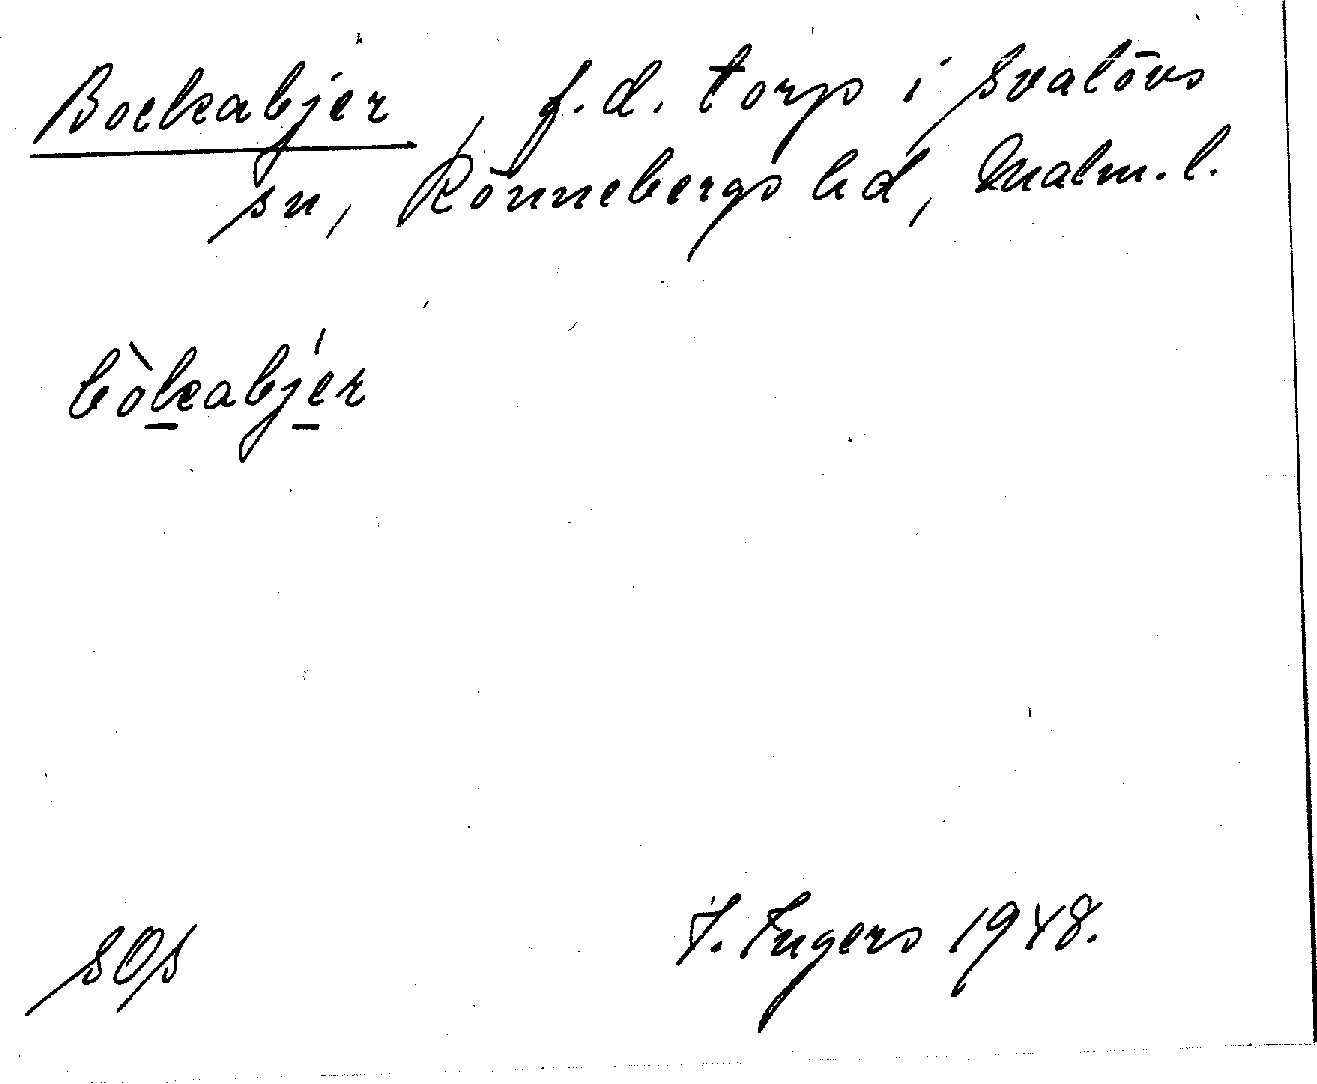 Bockabjer, f.d. torp i Svalövs
sn, Rönnebergs hd, Malm. l.
bòkabjér
I. Ingers 1948.